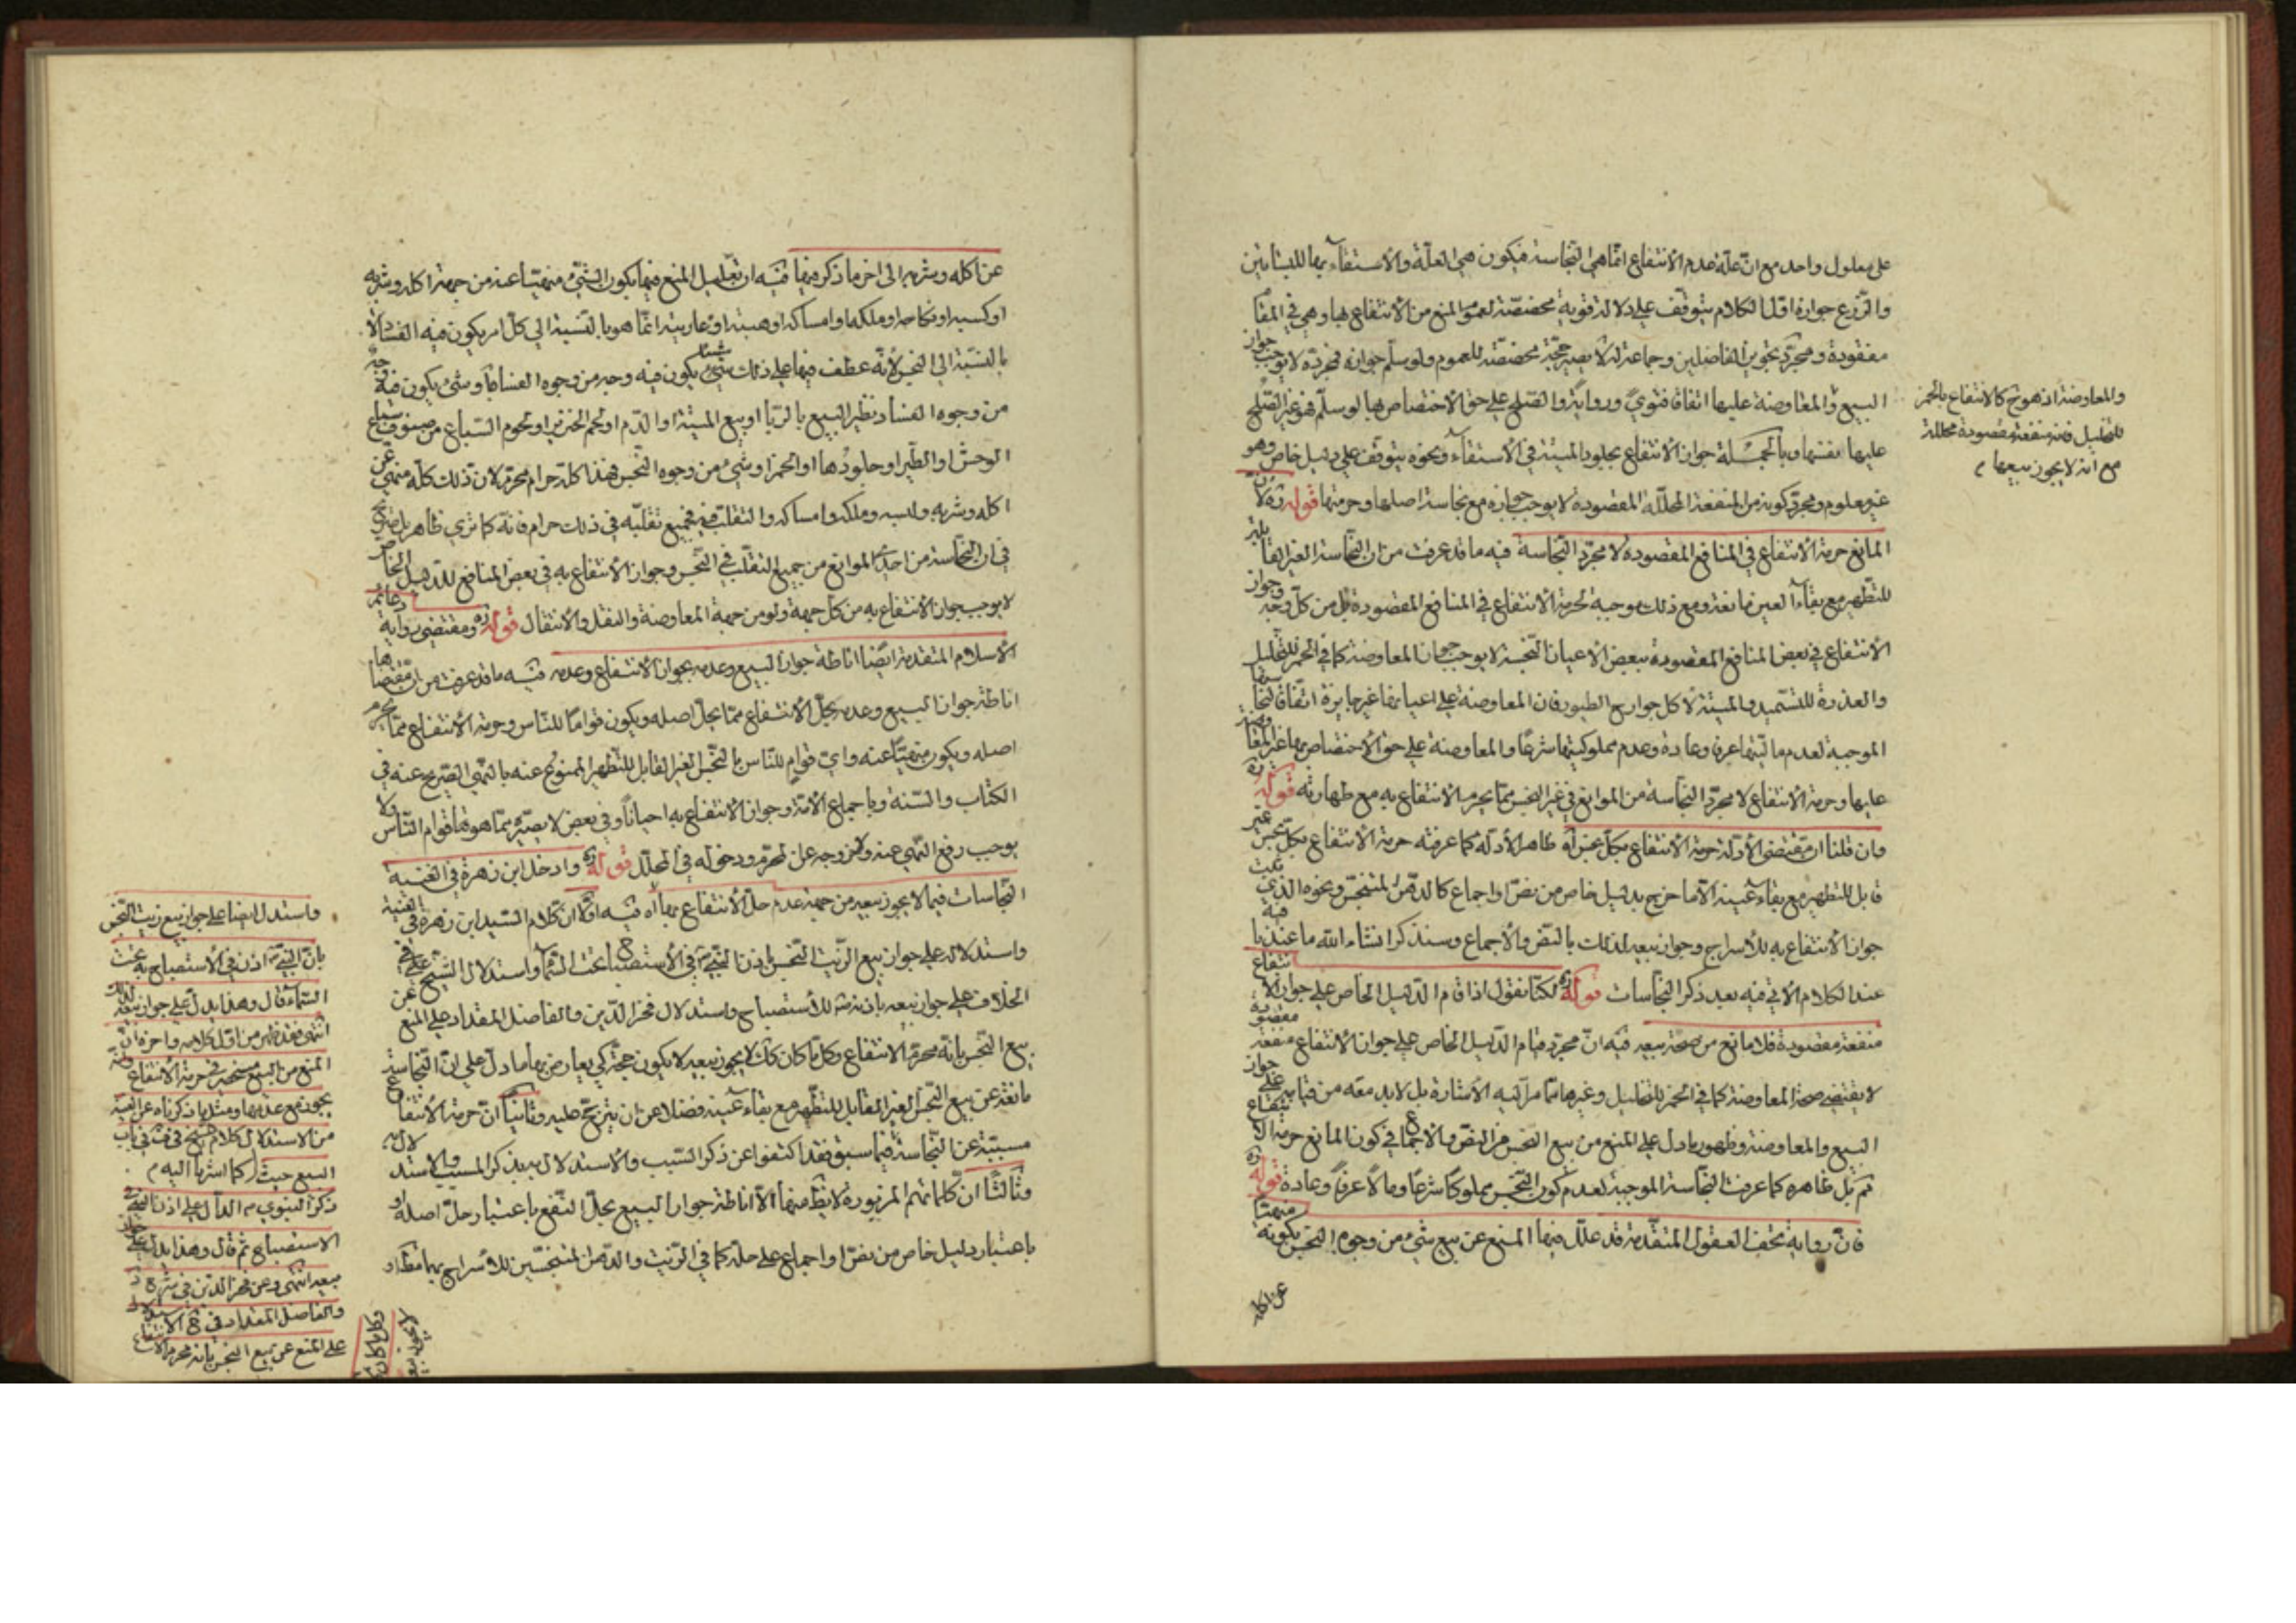 على معلول واحد مع ان علة عدم الانتفاع انما هى النجاسة فيكون هى العلة والاستقاء بها للبساتين
والزرع جوازه اول الكلام يتوقف على دلالة قوية مخصصة لعموم المنع من الانتفاع بها وهى فى المقام
مفقودة ومجرد تجويز الفاضلين وجماعة له لا يصير حجة مخصصة للعموم ولو سلم جوازه فمجرده لا يوجب جواز
البيع والمعاوضة عليها اتفاقا فتوى ورواية والصلح على حق الاختصاص بها لو سلم هو غير الصلح
عليها نفسها وبالجملة جواز الانتفاع بجلود الميتة فى الاستقاء ونحوه يتوقف على دليل خاص وهو
غير معلوم ومجرد كونه من المنفعة المحللة المقصودة لا يوجب جوازه مع نجاسة اصلها وحرمتها قوله ره لان
المانع حرمة الانتفاع فى المنافع المقصودة لا مجرد النجاسة فيه ما قد عرفت من ان النجاسة الغير القابلة
للتطهير مع بقاء العين مانعة ومع ذلك موجبة لحرمة الانتفاع فى المنافع المقصودة بل من كل وجه وجواز
الانتفاع فى بعض المنافع المقصودة ببعض الاعيان النجسة لا يوجب جواز المعاوضة كما فى الخمر للتخليل
والعذرة للتسميد والميتة لاكل جوارح الطيور فان المعاوضة على اعيانها غير جايزة اتفاقا لنجاستها
الموجبة لعدم ماليتها عرفا وعادة وعدم مملوكيتها شرعا والمعاوضة على حق الاختصاص بها غير المعاوضة
عليها وحرمة الانتفاع لا مجرد النجاسة من الموانع فى غير النجس مما يحرم الانتفاع به مع طهارته قوله ره
وان قلنا ان مقتضى الادلة حرمة الانتفاع بكل نجس اه ظاهر الادلة كما عرفته حرمة الانتفاع بكل نجس غير
قابل للتطهير مع بقاء عينه الا ما خرج بدليل خاص من نص او اجماع كالدهن المتنجس ونحوه الذى ثبت
جواز الانتفاع به للاسراج وجواز بيعه لذلك بالنص والاجماع وسنذكر انشاء الله ما عندنا فيه
عند الكلام الاتى فيه بعد ذكر النجاسات قوله ره لكنا نقول اذا قام الدليل الخاص على جواز الانتفاع
منفعة مقصودة فلا مانع من صحة بيعه فيه ان مجرد قيام الدليل الخاص على جواز الانتفاع منفعة مقصودة
لا يقتضى صحة المعاوضة كما فى الخمر للتخليل وغيرها مما مر اليه الاشارة بل لا بد معه من قيامه على جواز
البيع والمعاوضة وظهور ما دل على المنع من بيع النجس من النص والاجماع فى كون المانع حرمة الانتفاع
ثم بل ظاهره كما عرفت النجاسة الموجبة لعدم كون النجس مملوكا شرعا ومالا عرفا وعادة قوله ره
فان رواية تحف العقول المتقدمة قد علل فيها المنع عن بيع شئ من وجوه النجس بكونه منهيا
عن اكله
والمعاوضة
كالانتفاع بالخمر
للتخليل فانه منفعة مقصودة محللة
مع انه لا يجوز بيعها م
عن اكله وشربه الى اخر ما ذكر فيها فيه ان تعليل المنع فيها بكون الشئ منهيا عنه من جهة اكله وشربه
او كسبه او نكاحه او ملكه او امساكه او هبته او عاريته انما هو بالنسبة الى كل امر يكون فيه الفساد لا
بالنسبة الى النجس لانه عطف فيها على ذلك شيئا يكون فيه وجه من وجوه الفساد او شئ يكون فيه وجه
من وجوه الفساد نظير البيع بالربا او بيع الميتة او الدم او لحم الخنزير او لحوم السباع من صنوف سباع
الوحش او الطير او جلودها او الخمر او شئ من وجوه النجس فهذا كله حرام محرم لان ذلك كله منهى عن
اكله وشربه ولبسه وملكه وامساكه والتقلب فيه فجميع تقلبه فى ذلك حرام فانه كما ترى ظاهر بل صريح
فى ان النجاسة من احد الموانع من جميع التقلب فى النجس وجواز الانتفاع به فى بعض المنافع للدليل الخاص
لا يوجب جواز الانتفاع به من كل جهة ولو من جهة المعاوضة والنقل والانتقال قوله ره ومقتضى رواية دعائم
الاسلام المتقدمة ايضا اناطة جواز البيع وعدمه بجواز الانتفاع وعدمه فيه ما قد عرفت من ان مقتضاها
اناطة جواز البيع وعدمه بحل الانتفاع مما يحل اصله ويكون قواما للناس وحرمة الانتفاع مما يحرم
اصله ويكون منهيا عنه واى قوام للناس بالنجس الغير القابل للتطهير الممنوع عنه بالنهى الصريح عنه فى
الكتاب والسنة وباجماع الامة وجواز الانتفاع به احيانا وفى بعض لا يصيره مما هو لها قوام الناس ولا
يوجب رفع النهى عنه وخروجه عن المحرم ودخوله فى المحلل قوله ره وادخل ابن زهرة فى الغنية
النجاسات فيما لا يجوز بيعه من جهة عدم حل الانتفاع بها اه فيه اولا ان كلام السيد ابن زهرة فى الغنية
واستدلاله على جواز بيع الزيت النجس باذن النبى ص فى الاستصباح تحت السماء واستدلال الشيخ ره فى
الخلاف على جواز بيعه باذنه للاستصباح واستدلال فخر الدين والفاضل المقداد على المنع عن
بيع النجس بانه محرم الانتفاع وكل ما كان كذلك لا يجوز بيعه لا يكون حجة كى يعارض بها ما دل على ان النجاسة
مانعة عن بيع النجس الغير القابل للتطهير مع بقاء عينه فضلا عن ان يترجح عليه وثانيا ان حرمة الانتفاع
مسببة عن النجاسة فيما سبق فقد اكتفوا عن ذكر السبب والاستدلال به بذكر المسبب والاستدلال به
وثالثا ان كلماتهم المزبورة لا يظهر منها الا اناطة جواز البيع بحل النفع باعتبار حل اصله او
باعتبار دليل خاص من نص او اجماع على حله كما فى الزيت والدهن المتنجسين للاسراج بهما
واستدل ايضا على جواز بيع زيت النجس
بان النبى ص اذن فى الاستصباح به تحت
السماء قال وهذا يدل على جواز بيعه لذلك
انتهى فقد ظهر من اول كلامه واخره ان
المنع من البيع منحصر فى حرمة الانتفاع وانه
يجوز مع عدمها ومثل ما ذكرناه عن الغنية
من الاستدلال كلام الشيخ فى
باب
البيع حيث
كما اشرنا اليه م
ذكر النبوى ص الدال على اذن النبى ص فى
الاستصباح ثم قال وهذا يدل على جواز
بيعه انتهى وعن فخر الدين فى شرح
والفاضل المقداد فى
الاستدلال
على المنع عن بيع النجس بانه محرم الانتفاع
وكل ما كان
لا يجوز بيعه